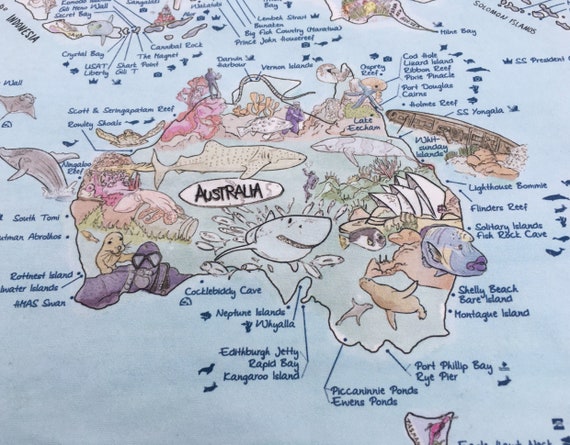 INDONESIA
Gili Nanggu
USS Liberty
Secret Bay
Crystal Bay
USAT Liberty
Shark Point
Gili T
Cannibal Rock
The Magnet
Lembeh Strait
Bunaken
Big Fish Country (Maratua)
Prince John Housereef
SOLOMON ISLANDS
Milne Bay
Darwin Harbour
Vernon Islands
Osprey Reef
Cod Hole
Lizard Island
Ribbon Reef
Pixie Pinacle
Port Douglas
Cairns
Holmes Reef
SS President
SS Yongala
Lake Eecham
Whit-
sunday
Islands
Scott & Seringapatam Reef
Rowley Shoals
Ningaloo
Reef
AUSTRALIA
Lighthouse Bommie
Flinders Reef
Solitary Islands
Fish Rock Cave
South Tomi
Abrolhos
Rottnest Island
Islands
HMAS Swan
Cocklebiddy Cave
Neptune Islands
Whyalla
Edithburgh Jetty
Rapid Bay
Kangaroo Island
Shelly Beach
Bare Island
Montague Island
Port Phillip Bay
Rye Pier
Piccaninnie Ponds
Ewens Ponds